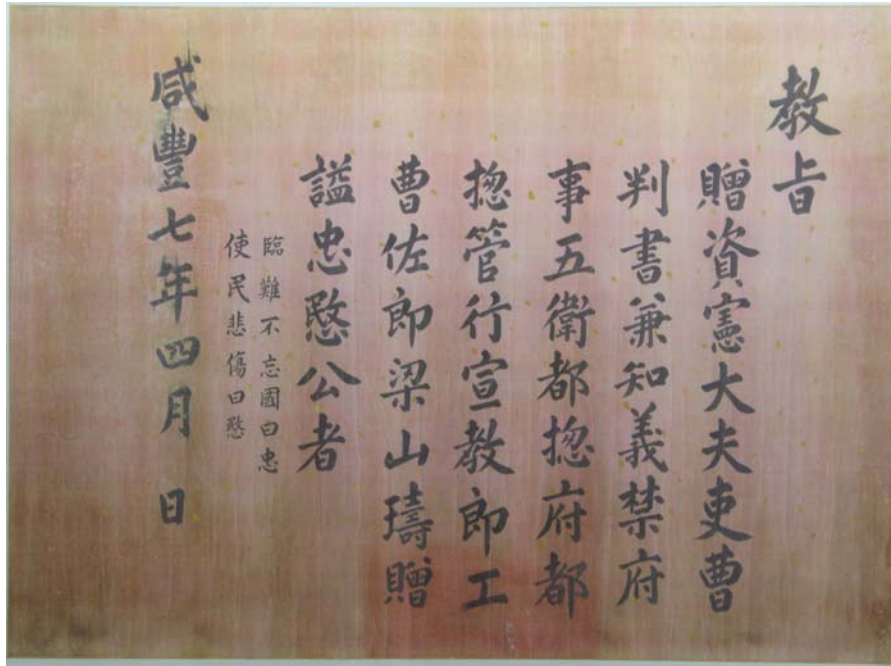 教旨
贈資憲大夫吏曹
判書兼知義禁府
事五衛都摠府都
摠管行宣教郎工
曹佐郎梁山璹贈
諡忠愍公者
臨難不忘國曰忠
使民悲傷曰愍
咸豐七年四月 日